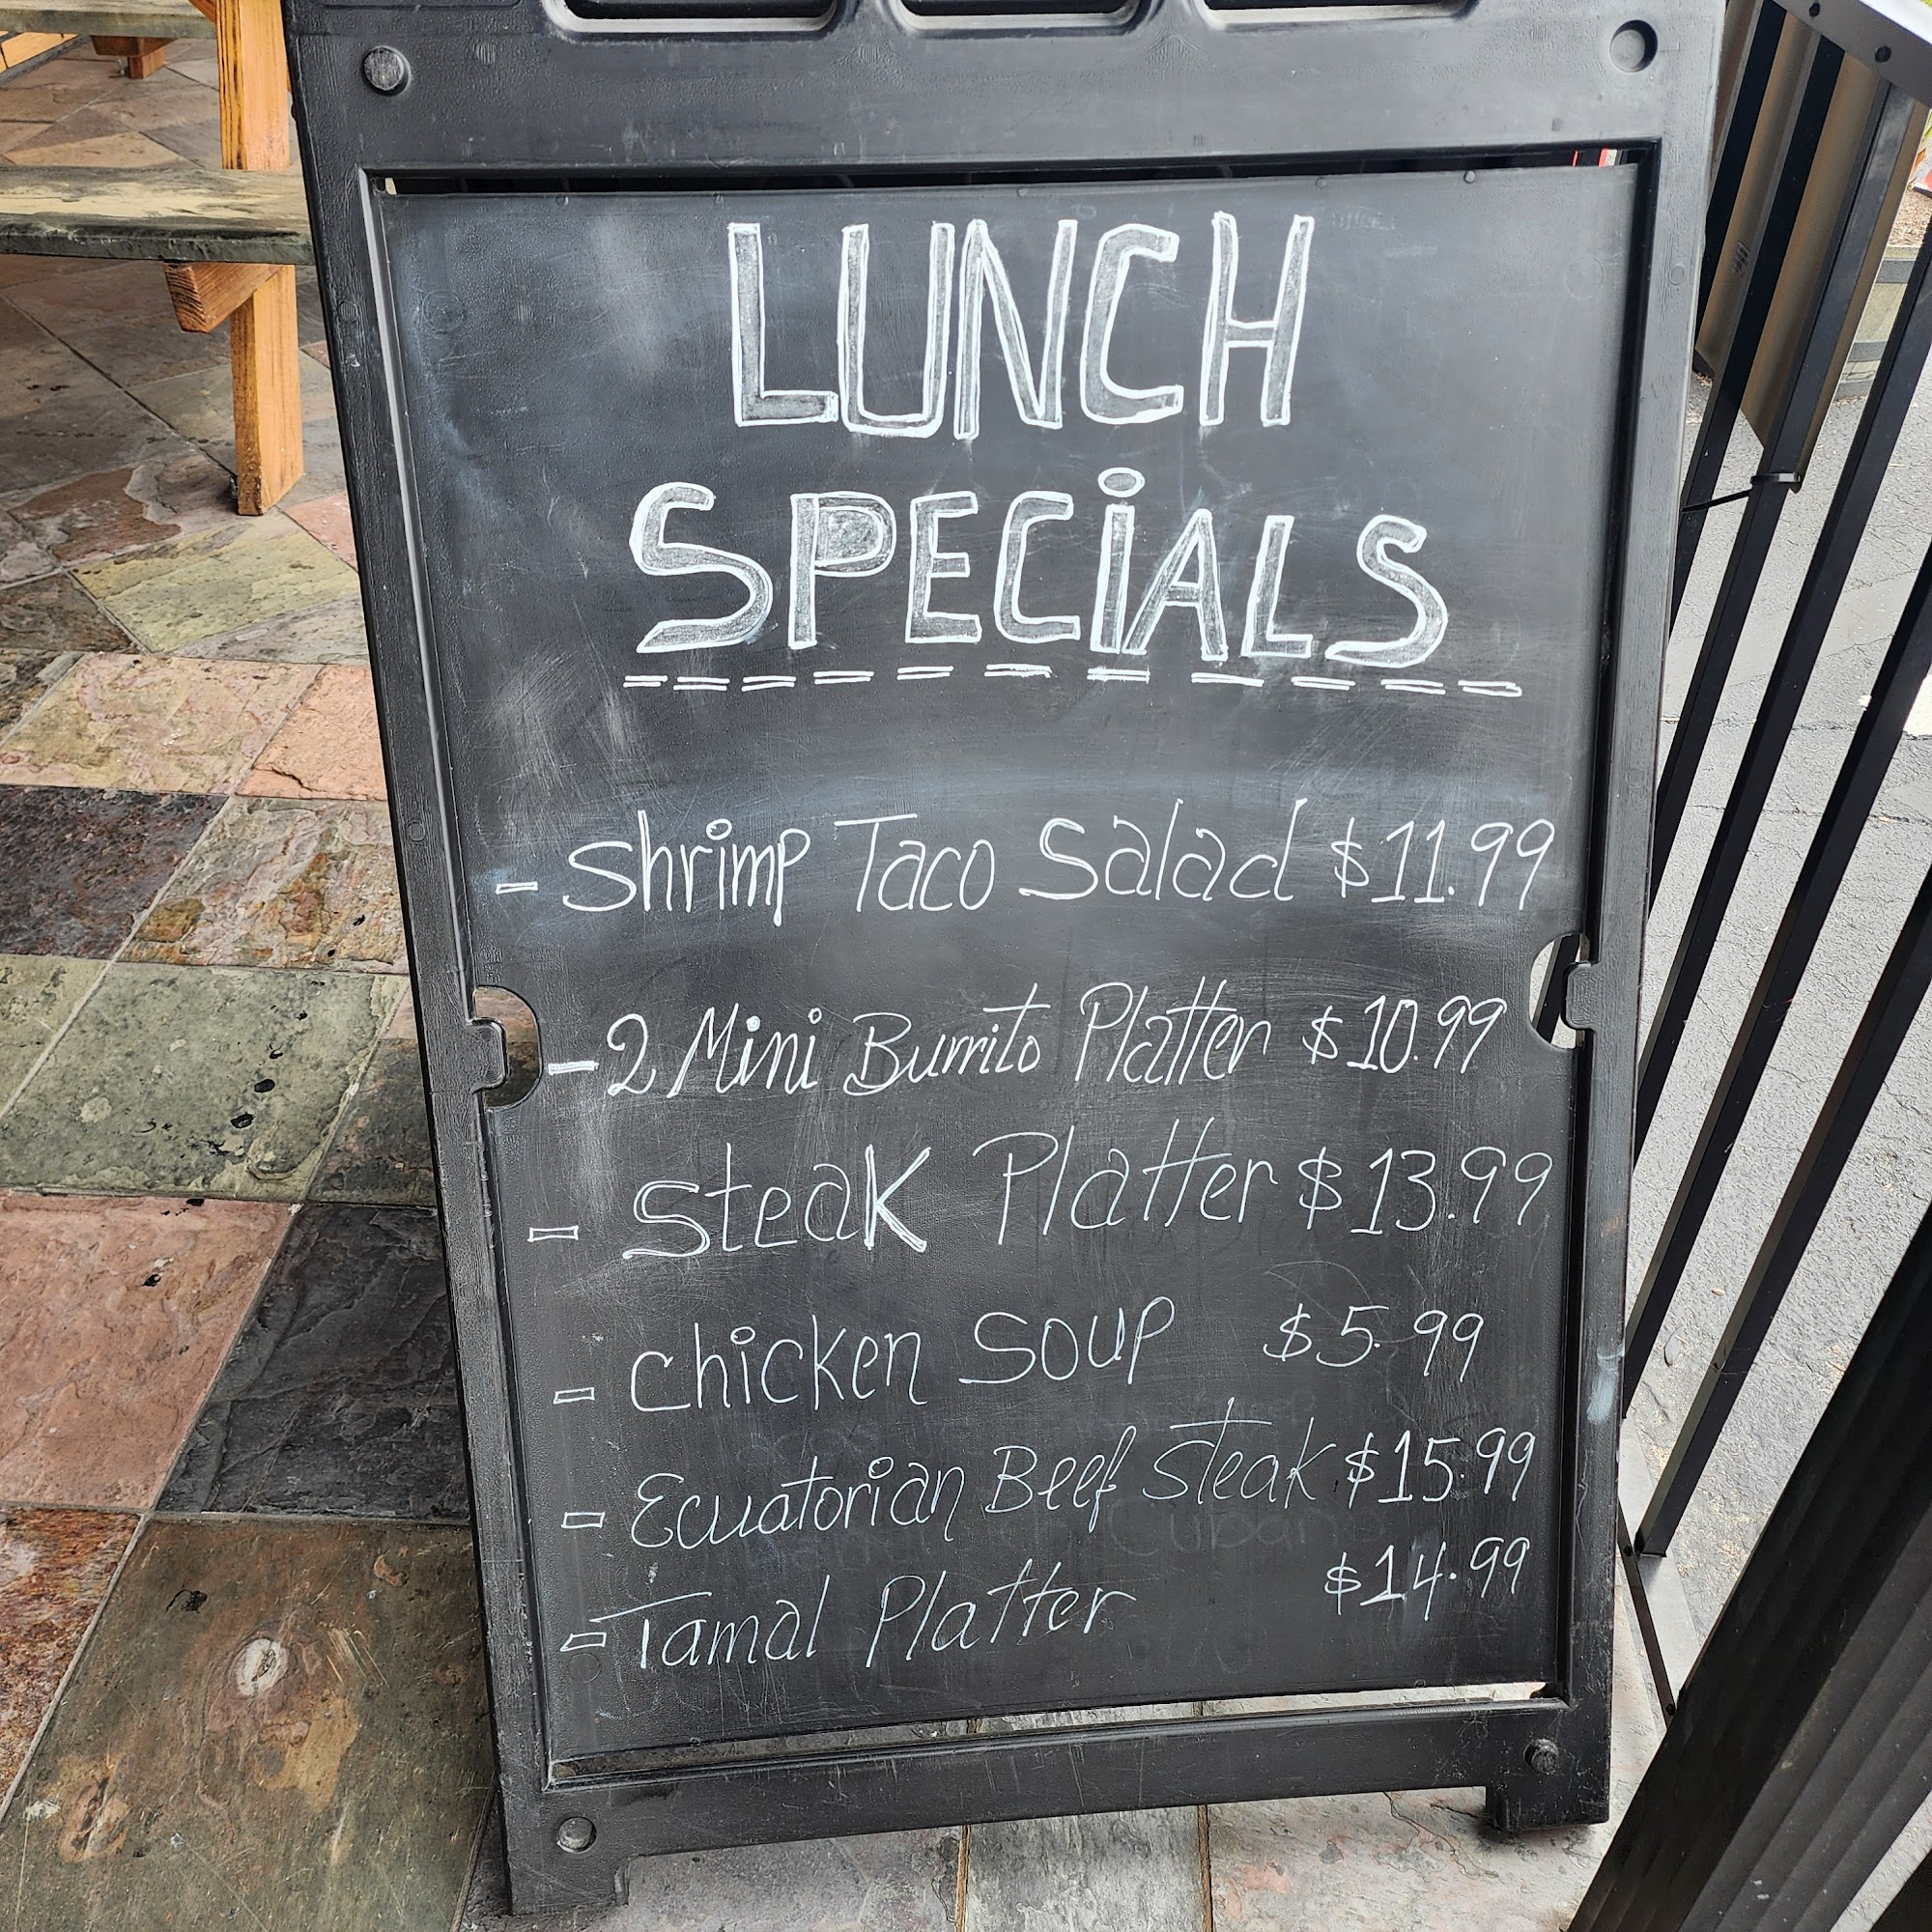 LUNCH
SPECiALS
- Shrimp Taco Salad $11.99
- 2 Mini Burrito Platter $10.99
- SteaK Platter $13.99
- Chicken Soup $5.99
- Ecuatorian Beef Steak $15.99
- Tamal Platter $14.99